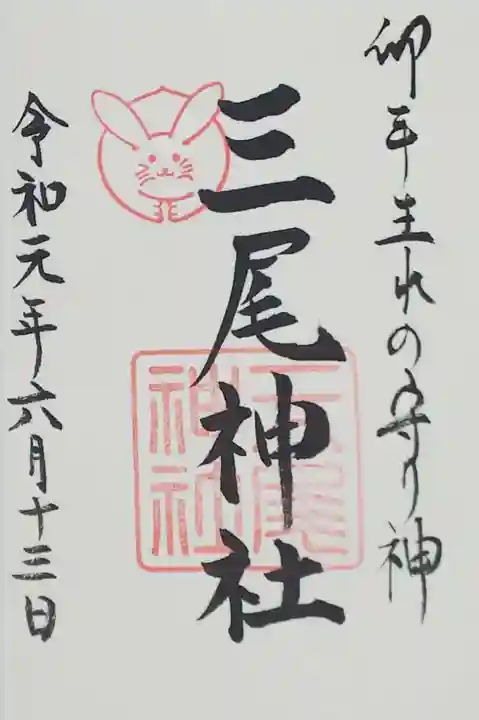 卯年生れのお守り神
三尾神社
三尾神社
令和元年六月十三日